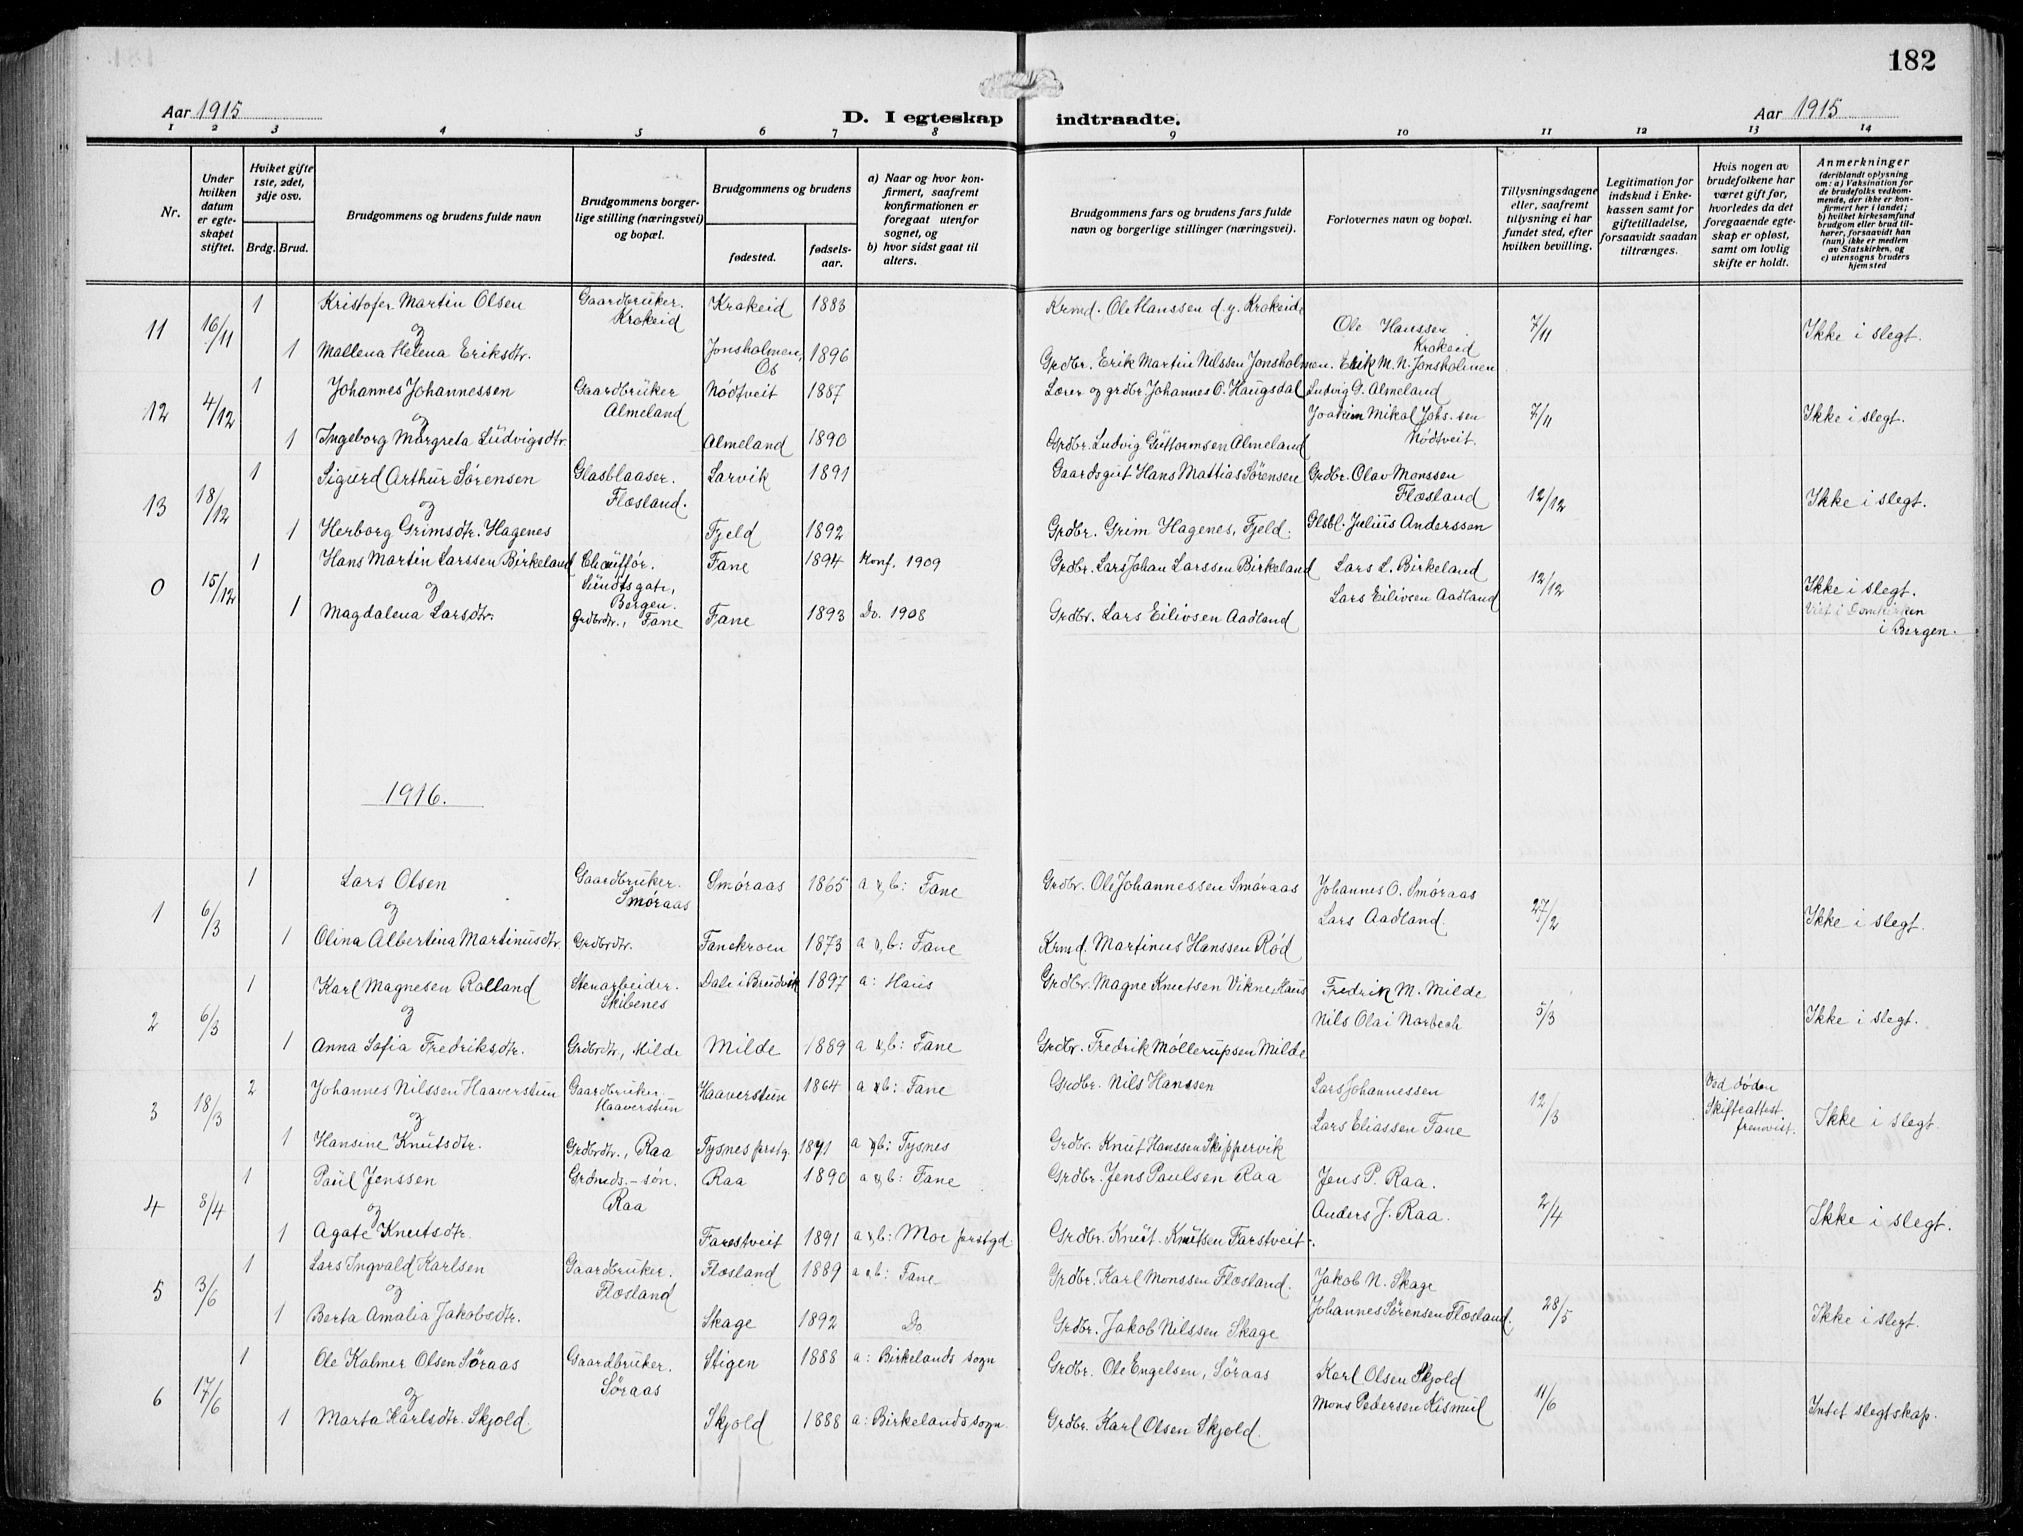 182
Aar 1915
D. I egteskap indtraadte.
Aar 1915
1 2 3 4 5 6 7 8 9 10 11 12 13 14
Nr.
Under hvilken datum er egteskapet stiftet.
Hvilket gifte 1ste, 2det, 3dje osv.
Brdg. Brud.
Brudgommens og brudens fulde navn
Brudgommens borgerlige stilling (næringsvei) og bopæl.
Brudgommens og brudens
fødested.
fødselsaar.
a) Naar og hvor konfirmert, saafremt konfirmationen er foregaat utenfor sognet, og
b) hvor sidst gaat til alters.
Brudgommens fars og brudens fars fulde navn og borgerlige stillinger (næringsvei).
Forlovernes navn og bopæl.
Tillysningsdagene eller, saafremt tillysning ei har fundet sted, efter hvilken bevilling.
Legitimation for indskud i Enkekassen samt for giftetilladelse, forsaavidt saadan tiltrænges.
Hvis nogen av brudefolkene har været gift før, hvorledes da det foregaaende egteskap er opløst, samt om lovlig skifte er holdt.
Anmerkninger (deriblandt oplysning om: a) Vaksination for de brudefolks vedkommende, der ikke er konfirmert her i landet; b) hvilket kirkesamfund brudgom eller brud tilhører, forsaavidt han (hun) ikke er medlem av Statskirken, og c) utensogns bruders hjemsted
11 16/11 1 Kristofer Martin Olsen Gaardbruker. Krokeid Krokeid 1883 Krmd. Ole Hanssen d.y. Krokeide Ole Hanssen Krokeid 7/11 Ikke i slegt.
og
1 Mallena Helena Eriksdtr. Jonsholmen, Os 1896 Grdbr. Erik Martin Nilssen Jonsholmen. Erik M. N. Jonsholmen
12 4/12 1 Johannes Johannessen Gaardbruker Almeland Nødtveit 1887 Lærer og grdbr. Johannes O. Haugsdal Ludvig G. Almeland 7/11 Ikke i slegt.
og
1 Ingeborg Margreta Ludvigsdtr. Almeland 1890 Grdbr. Ludvig Guttormsen Almeland Joakim Mikal Johs.sen Nødtveit.
13 18/12 1 Sigurd Arthur Sørensen Glasblaaser. Flæsland. Larvik 1891 Gaardsgut Hans Mattias Sørensen Grdbr. Olav Monssen Flæsland 12/12 Ikke i slegt.
og
1 Herborg Grimsdtr. Hagenes Fjeld 1892 Grdbr. Grim Hagenes, Fjeld. Glsbl. Julius Anderssen
0 15/12 1 Hans Martin Larssen Birkeland Chauffør. Sundtsgate, Bergen. Fane 1894 Konf. 1909 Grdbr. Lars Johan Larssen Birkeland Lars L. Birkeland 12/12 Ikke i slegt.
og
1 Magdalena Larsdtr. Grdbrdtr., Fane Fane 1893 Do. 1908 Grdbr. Lars Eilivsen Aadland Lars Eilivsen Aadland Viet i Domkirken i Bergen.
1916.
1 6/3 1 Lars Olsen Gaardbruker. Smøraas Smøraas 1865 a & b: Fane Grdbr. Ole Johannessen Smøraas Johannes O. Smøraas 27/2 Ikke i slegt.
og
1 Olina Albertina Martinusdtr Grdbrdtr. Fanekroen 1873 a & b: Fane Krmd. Martinus Hanssen Rød Lars Aadland.
2 6/3 1 Karl Magnesen Rolland Stenarbeider. Skibenes Dale i Brudvik 1897 a: Haus Grdbr. Magne Knutsen Vikne, Haus Fredrik M. Milde 5/3 Ikke i slegt.
og
1 Anna Sofia Fredriksdtr. Grdbrdtr, Milde Milde 1889 a & b: Fane Grdbr. Fredrik Møllerupsen Milde Nils Olai Norbech
3 18/3 2 Johannes Nilssen Haaverstun Gaardbruker. Haaverstun Haaverstun 1864 a & b: Fane Grdbr. Nils Hanssen Lars Johannessen 12/3 Ved døden Skifteattest fremvist. Ikke i slegt.
og
1 Hansine Knutsdtr. Grdbrdtr., Raa Tysnes prstg. 1871 a & b: Tysnes Grdbr. Knut Hanssen Skippervik Lars Eliassen Fane
4 8/4 1 Paul Jenssen Grdmds.-søn. Raa Raa 1890 a & b: Fane Grdbr. Jens Paulsen Raa Jens P. Raa. 2/4 Ikke i slegt.
og
1 Agate Knutsdtr. Farestveit 1891 a & b: Moe prstgd. Grdbr. Knut Knutsen Farstveit. Anders J. Raa.
5 3/6 1 Lars Ingvald Karlsen Gaardbruker. Flæsland Flæsland 1889 a & b: Fane Grdbr. Karl Monssen Flæsland. Jakob N. Skage 28/5 Ikke i slegt.
og
1 Berta Amalia Jakobsdtr. Skage 1892 Do Grdbr. Jakob Nilssen Skage Johannes Sørensen Flæsland.
6 17/6 1 Ole Kalmer Olsen Søraas Gaardbruker. Søraas Stigen 1888 a: Birkelands sogn Grdbr. Ole Engelsen, Søraas Karl Olsen Skjold 11/6 Intet slegtskap.
og
1 Marta Karlsdtr. Skjold. Skjold 1888 a: Birkelands sogn. Grdbr. Karl Olsen Skjold. Mons Pedersen Kismul